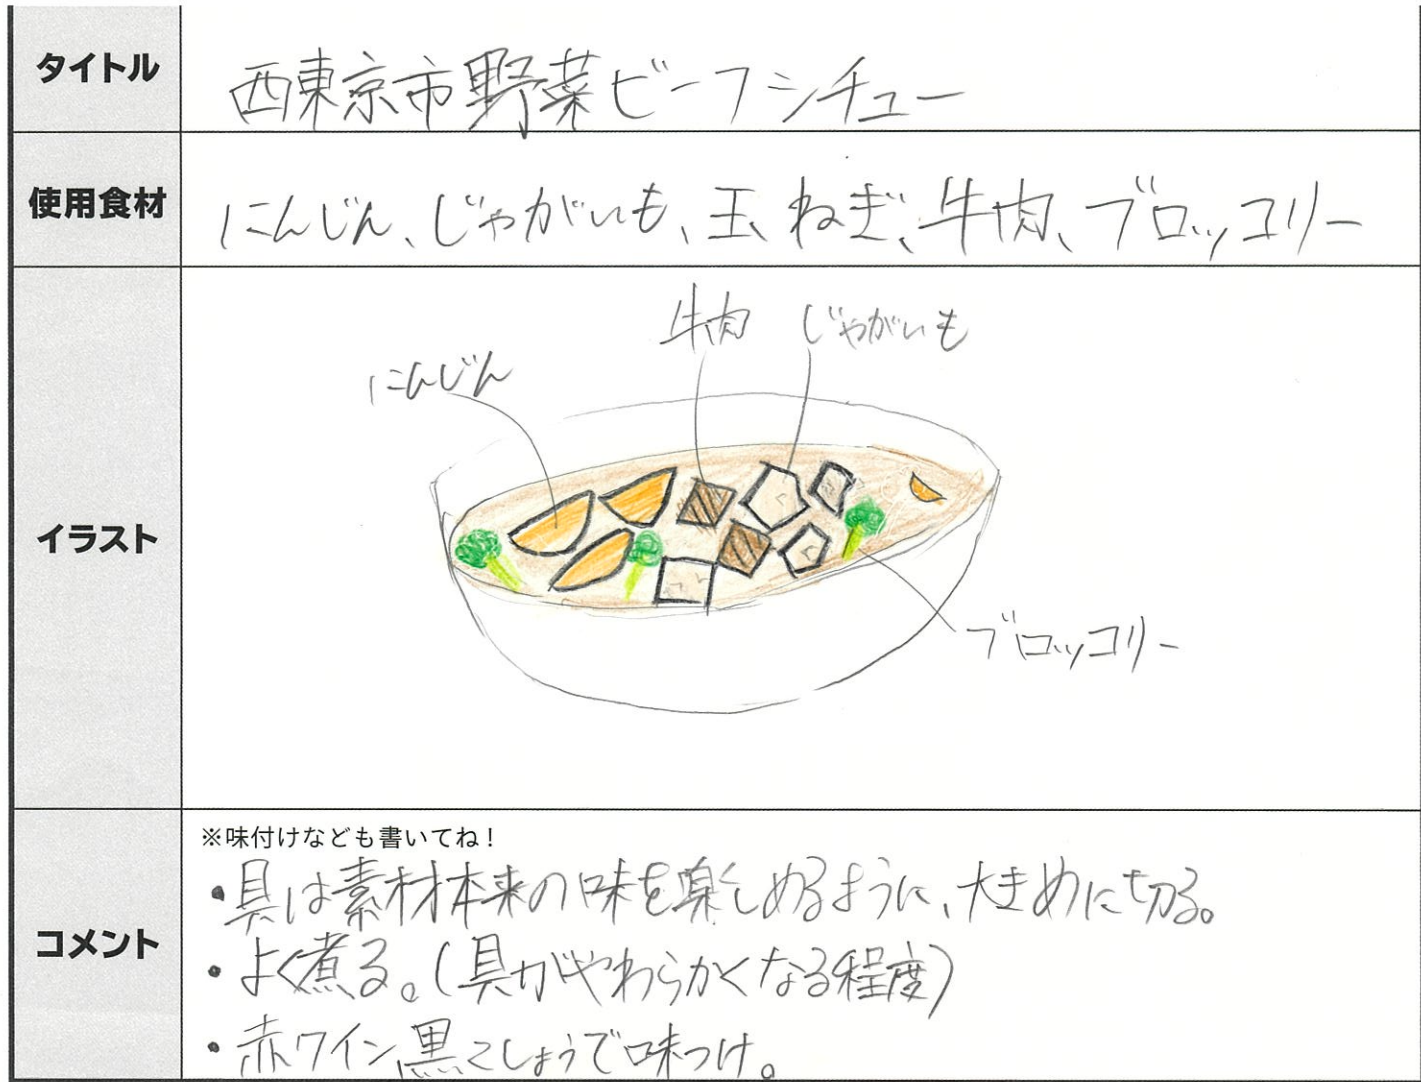 タイトル
西東京市野菜ビーフシチュー
使用食材
にんじん、じゃがいも、玉ねぎ、牛肉、ブロッコリー
イラスト
牛肉 じゃがいも
にんじん
ブロッコリー
コメント
※味付けなども書いてね！
・具は素材本来の味を楽しめるように、大きめに切る。
・よく煮る。(具がやわらかくなる程度)
・赤ワイン、黒こしょうで味つけ。